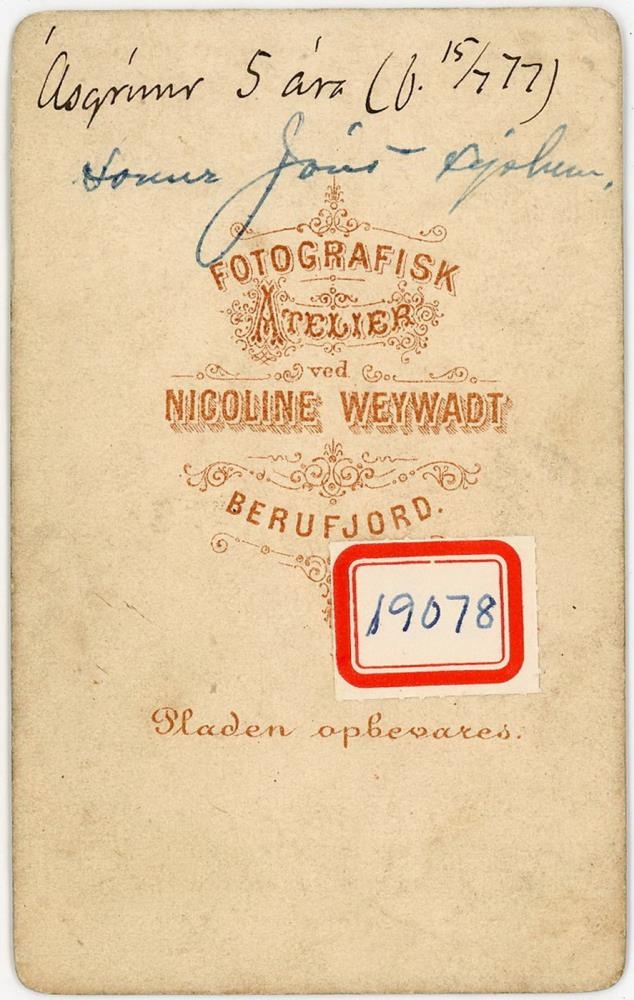 Ásgrímur 5 ára (f. 15/7 77)
sonur Jóns
FOTOGRAFISK
ATELIER
ved
NICOLINE WEYWADT
BERUFJORD.
19078
Pladen opbevares.